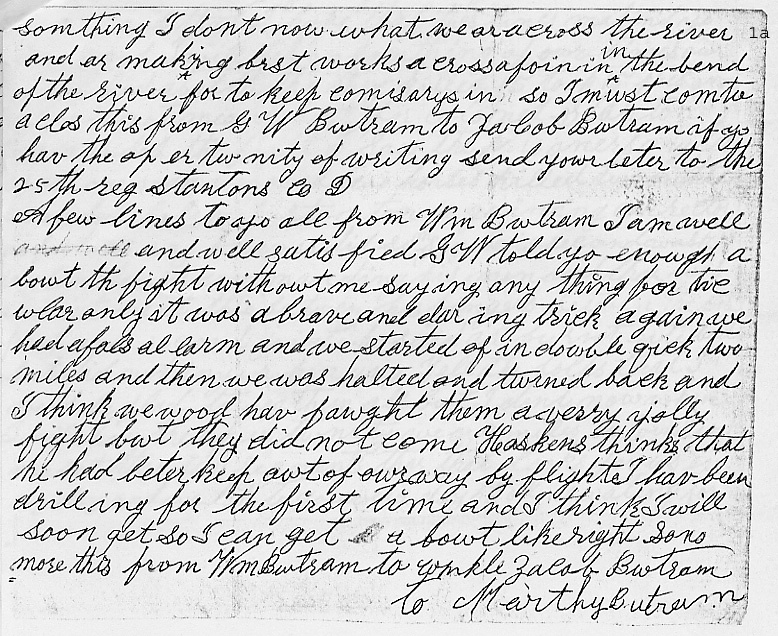 somthing I dont now what we ar across the river 1a
and ar making brst works a cross a foin in in the bend
of the river for to keep comisarys in so I must com to
a clos this from G W Butram to Jacob Butram if yo
hav the op er tu nity of writing send your leter to the
25th reg Stantons Co D
A few lines to yo all from Wm Butram I am well
and well and well satis fied G W told yo enough a
bowt th fight withowt me saying any thing for
only it was a brave and dar ing trick again we
had a fals al larm and we started of in dowble qick two
miles and then we was halted and turned back and
I think we wood hav fawght them a verry jolly
fight bwt they did not come Haskens thinks that
he had beter keep owt of owr way by flight I hav been
drill ing for the first time and I think I will
soon get so I can get a bowt like right so no
more this from Wm Butram to unkle Jacob Butram
to Marthy Butram